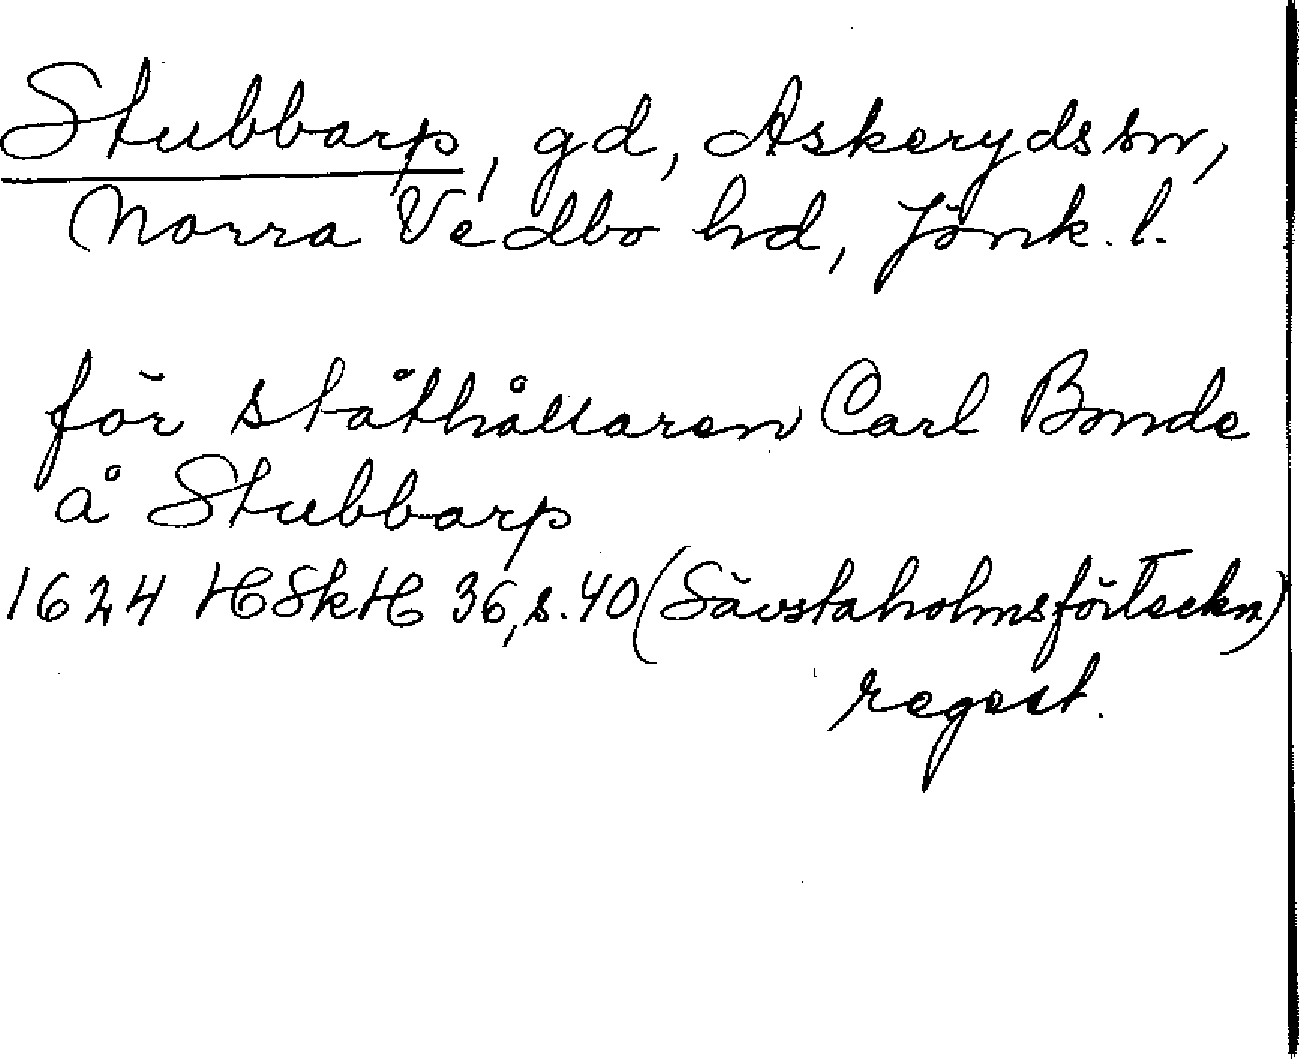 Stubbarp, gd, Askeryds sn,
Norra Vedbo hd, Jönk. l.
för ståthållaren Carl Bonde
å Stubbarp
1624 HSkH 36, s. 40 (Sävstaholmsförteckn)
regest.